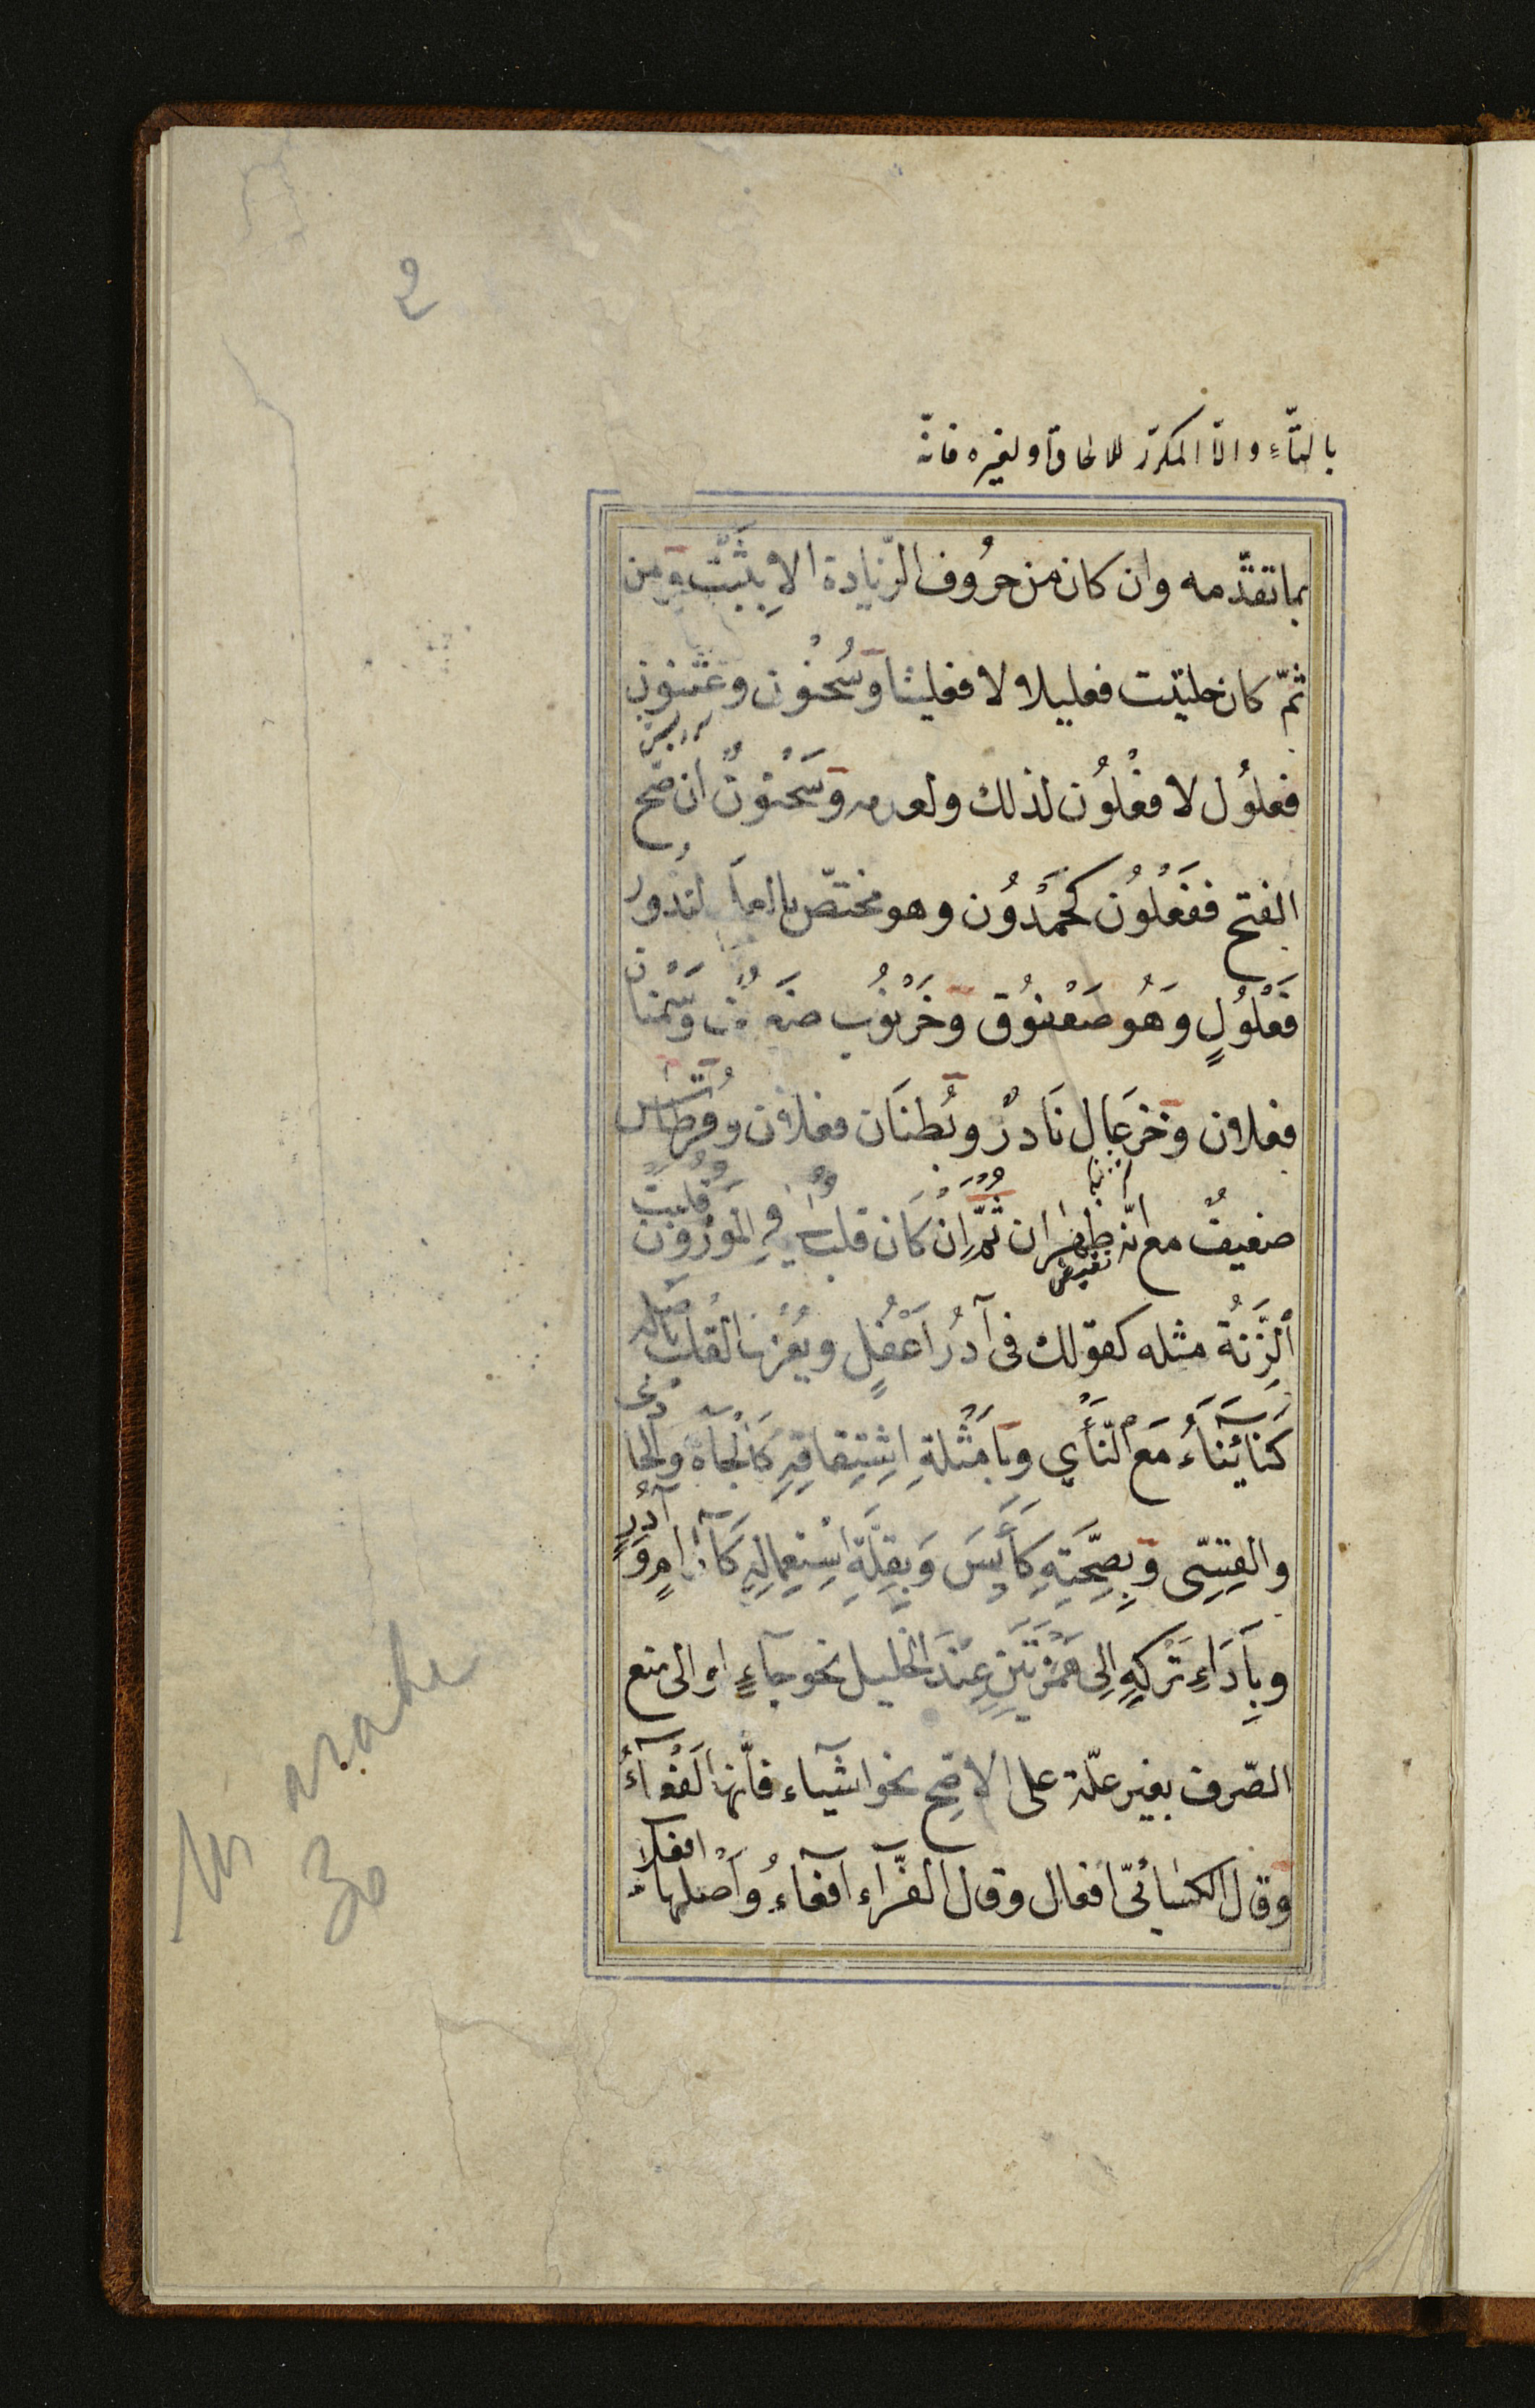 بالتّاءِ والّا المكرّر للالحاق او لغيره فانّه
بما تقدّمه وان كان من حرُوف الزّيادة الا بِثَبَتٍ ومن
ثمّ كان حلتيت فعليلا لا فعليتا وسُحْنُون وعُثنون
فعلُول لا فعْلُون لذلك ولعدمه وسَحْنُونٌ ان صحّ
الفتح ففَعْلُون كحَمْدُون وهو مختصّ بالعلم لندُور
فَعْلُولٍ وَهُو صَعْفُوق وخَرْنُوب ضعيف وسَمْنان
فعلان وخزعَال نَادرٌ وبُطنَان فعلان وقُرطاس
ضعيفٌ مع انّه نقيض ظهران ثُمَّ إنْ كَان قلبٌ فِي المَوزُونِ قلبت
الزِّنَةُ مثله كقولك فى آدُر اَعْفُلٍ ويُعْرَف القلب باَصله
كنَاءَ يَنَاءُ مَعَ النَّأي وبِاَمْثلةِ اشتِقاقِهِ كَالْجَاهِ والحادى
والقِسِىّ وبِصِحَّتِهِ كَاَيِسَ وَبِقِلَّةِ اسْتِعمالِهِ كَآرَامٍ وآدُرٍ
وبِاَدَاءِ تَرْكِهِ اِلى هَمْزَتَيْنِ عِنْدَ الخليل نحو جآءٍ او الى منع
الصّرف بغير علّة على الاصحّ نحو اشياء فانّها لَفْعآءُ
وقال الكسائىّ افعال وقال الفرّاء اَفعاء واَصلها افعلاء
2
30